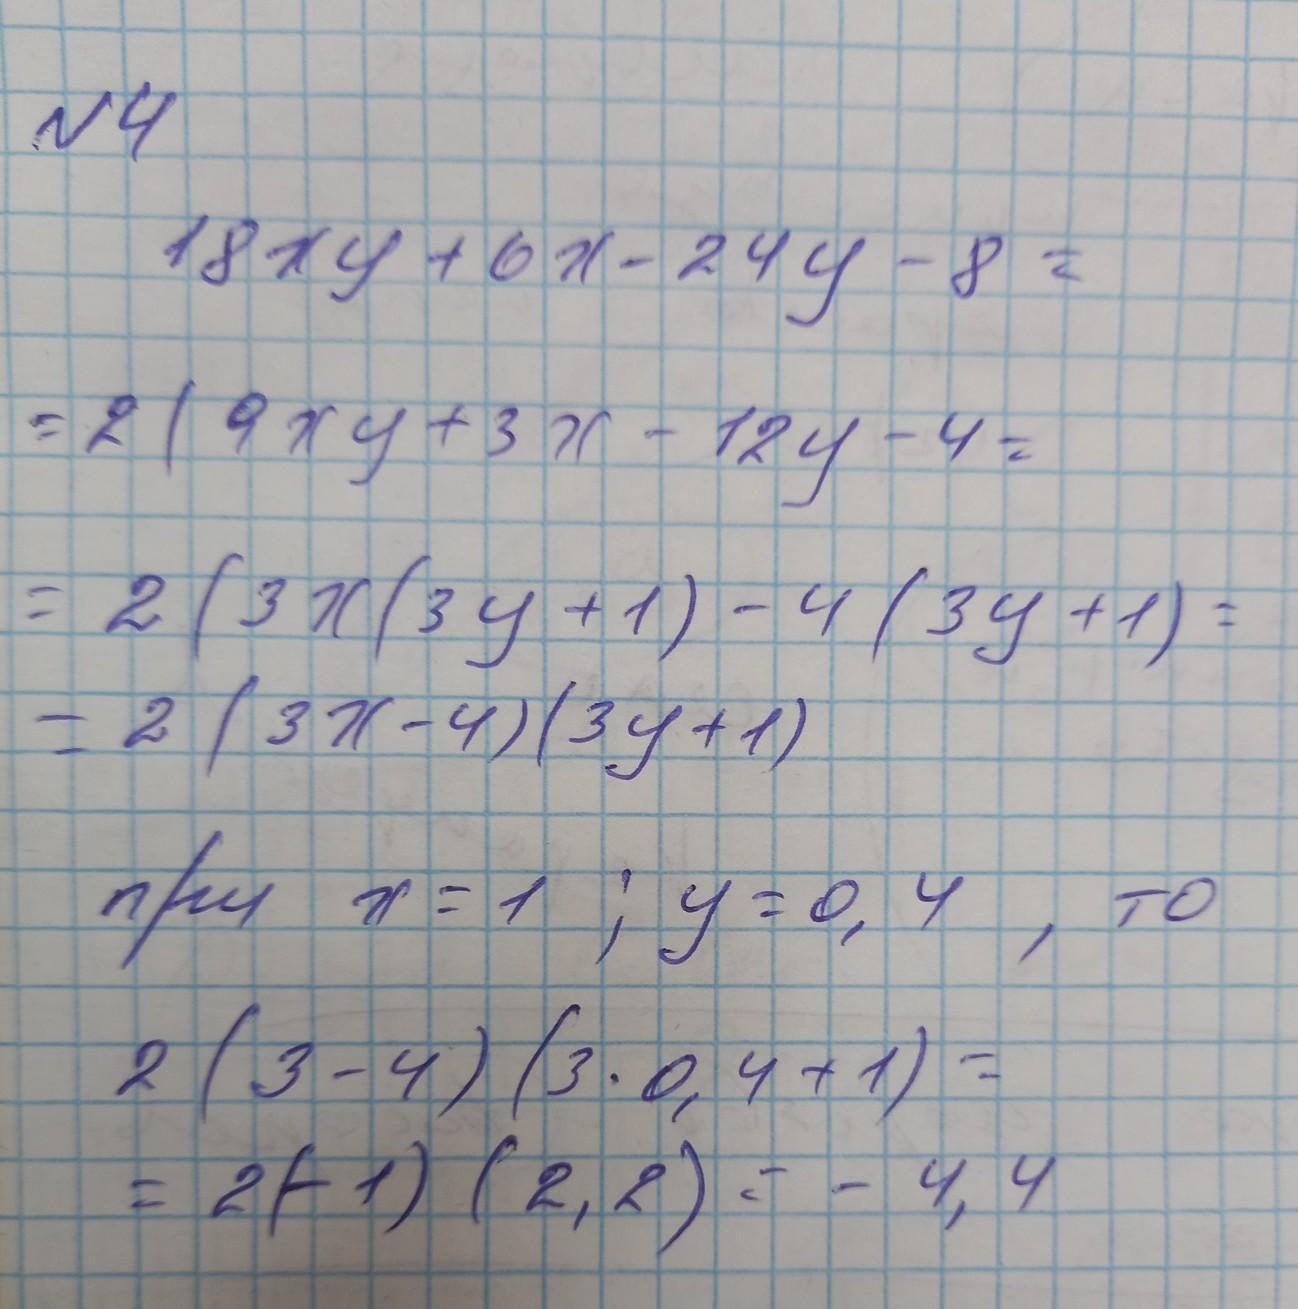 №4
18xy + 6x - 24y - 8 =
= 2 ( 9xy + 3x - 12y - 4 =
= 2 (3x(3y + 1) - 4 (3y + 1) =
= 2 (3x - 4)(3y + 1)
при x = 1 ; y = 0,4 , то
2 (3 - 4) (3 · 0,4 + 1) =
= 2(-1) (2,2) = - 4,4